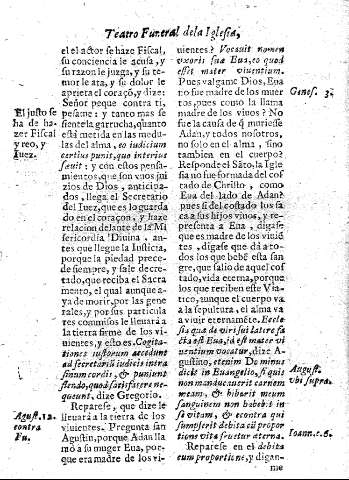 Teatro Funeral de la Iglesia,
el el actor se haze Fiscal,
su conciencia le acusa, y
su razon le juzga, y su te-
mor le ata, y su dolor le
aprieta el coraçõ, y dize:
Señor peque contra ti,
pesame: y tanto mas se
siente la garrucha, quanto
està metida en las medu-
las del alma, eo iudicium
certius punit, quo interius
sæuit: y con estos pensa-
mientos, que son vnos jui
zios de Dios, anticipa-
dos, llega el Secretario
del Juez, que es lo guarda
do en el coraçon, y haze
relacion delante de la Mi
sericordia Diuina, an-
tes que llegue la Iusticia,
porque la piedad prece-
de siempre, y sale decre-
tado, que reciba el Sacra
mento, el qual aunque a-
ya de morir, por las gene
rales, y por sus particula
res comisos le lleuarà a
la tierra firme de los vi-
uientes, y esto es. Cogita-
tiones iustorum accedunt
ad secretarij iudicis intra
sinum cordis, & puniunt
flendo, quod satisfacere ne-
queunt, dize Gregorio.
Reparese, que dize le
lleuarà a la tierra de los
viuientes. Pregunta san
Agustin, porque Adan lla
mò a su muger Eua, por-
que era madre de los vi-
El justo se
ha de ha-
zer Fiscal
y reo, y
Juez.
Agust. 12.
contra
Fa.
uientes? Vocauit nomen
vxoris suæ Eua, eo quod
esset mater viuentium.
Pues valgame Dios, Eua
no fue madre de los muer
tos, pues como la llama
madre de los viuos? No
fue la causa de q̃ muriesse
Adan, y todos nosotros,
no solo en el alma, sino
tambien en el cuerpo?
Responde el Sãto, la Iglesia
no fue formada del cos
tado de Christo, como
Eua del lado de Adan?
pues si del costado los sa
ca a sus hijos viuos, y re-
presenta a Eua, digase
que es madre de los viuiẽ
tes, digase que dà a to-
dos los que bebẽ esta san
gre, que salio de aquel cos
tado, vida eterna, porque
los que reciben este Via-
tico, aunque el cuerpo va
a la sepultura, el alma va
a viuir eternamẽte. Eccle-
sia quæ de viri sui latere fa
cta est Eua, id est mater vi
uentium vocatur, dize A-
gustino, etenim Dominus
dicit in Euangelio, si quis
non manducauerit carnem
meam, & biberit meum
sanguinem non habebit in
se vitam, & econtra qui
sumpserit debita cũ propor
tione vita fruetur æterna.
Reparese en el debita
cum proportione, y digan
me
Genes. 3.
August.
vbi supra.
Ioann. c. 6.